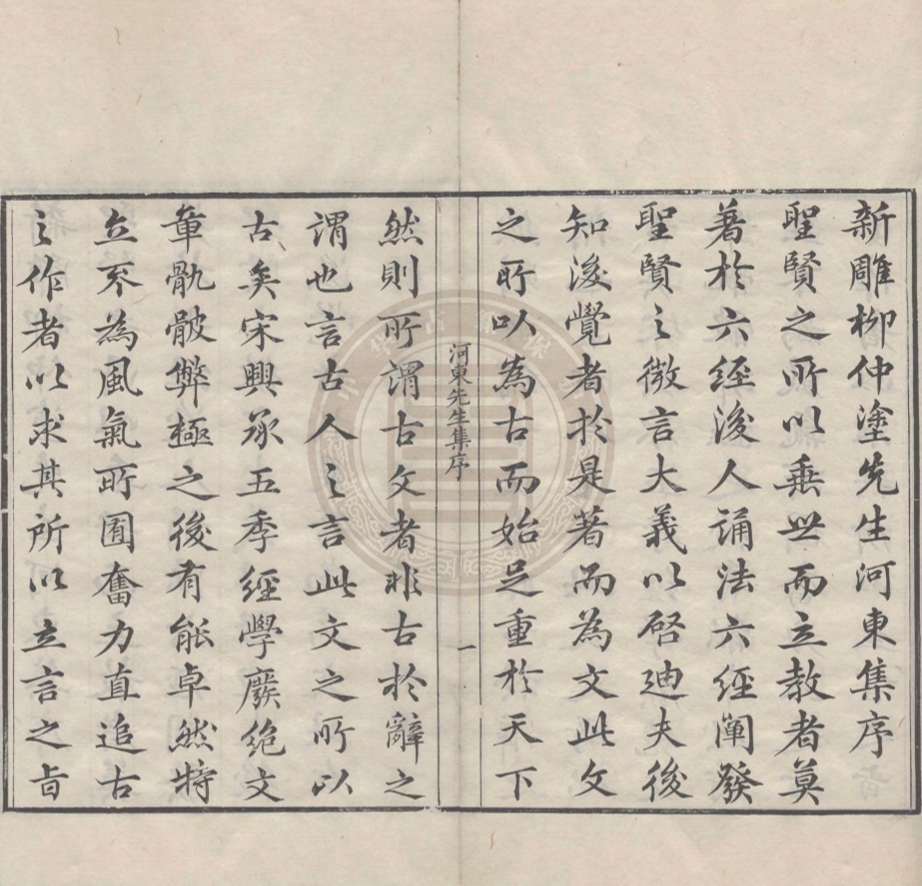 新雕柳仲塗先生河東集序
聖賢之所以垂世而立教者莫
著於六經後人誦法六經闡發
聖賢之微言大義以啓迪夫後
知後覺者於是著而為文此文
之所以為古而始足重於天下
河東先生集序
一
然則所謂古文者非古於辭之
謂也言古人之言此文之所以
古矣宋興承五季經學廢絶文
章骫骳弊極之後有能卓然特
立不為風氣所囿奮力直追古
之作者以求其所以立言之旨